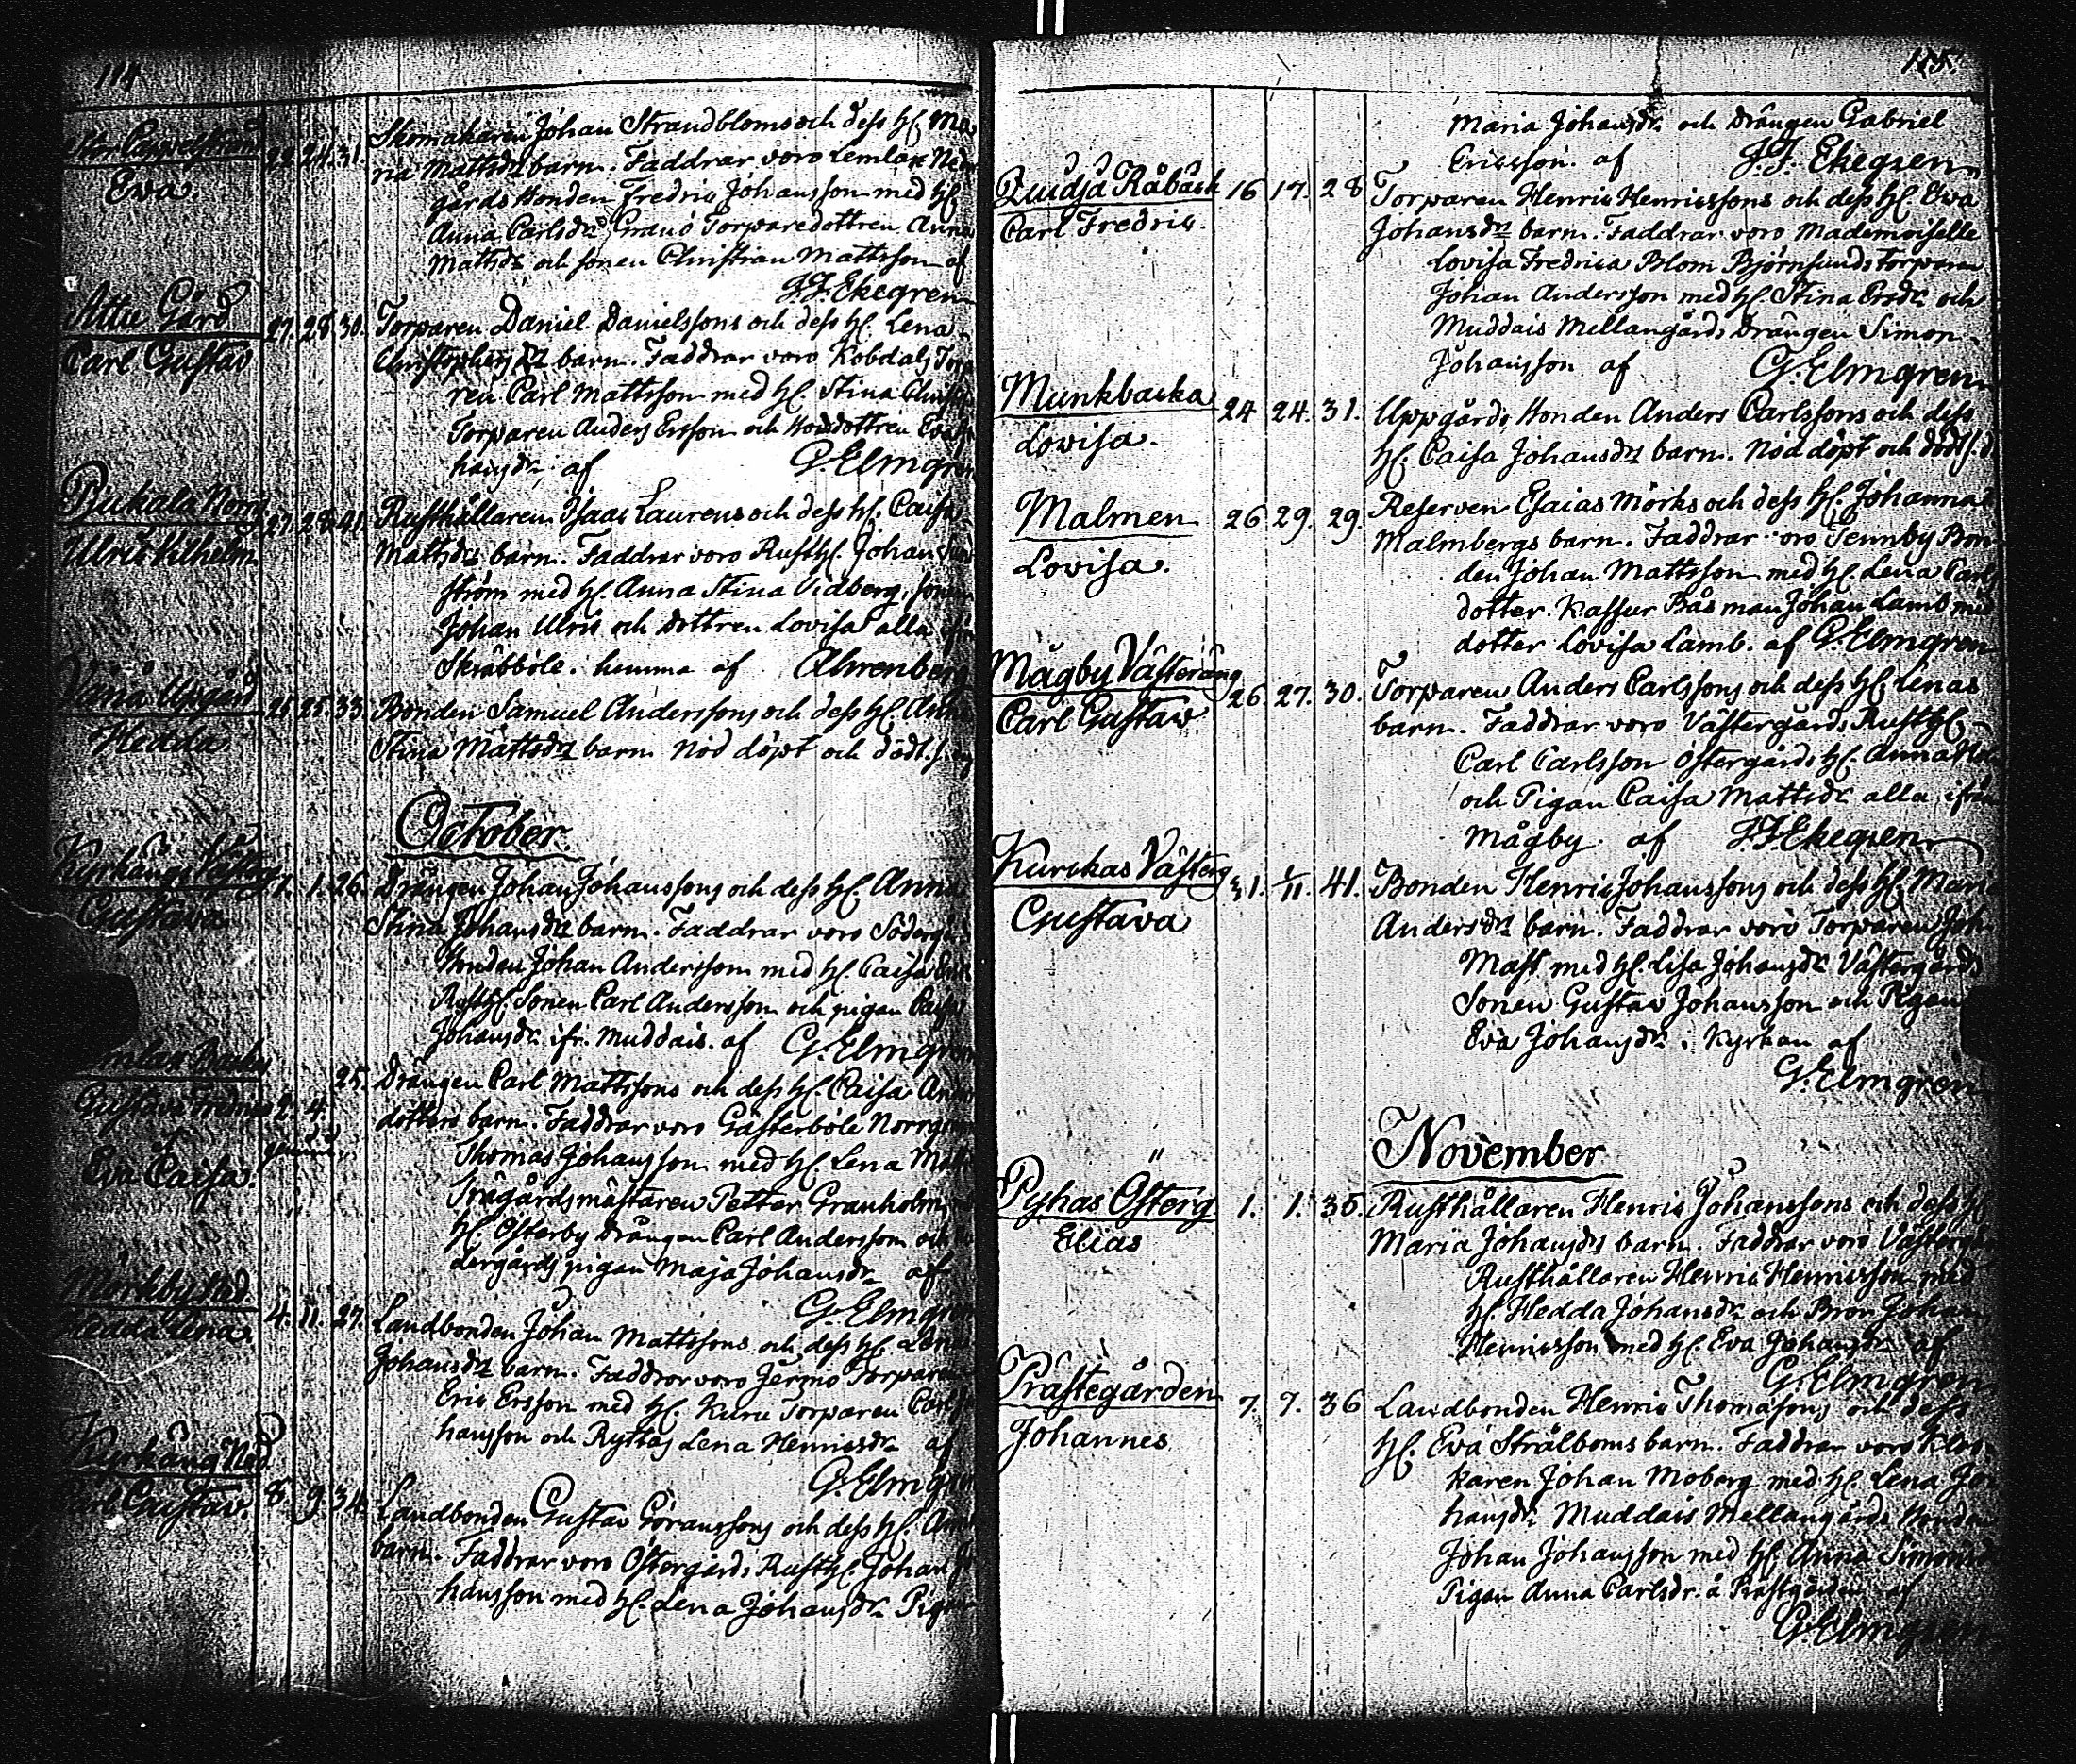 114
Ewa.
22. 24. 31.
Skomakaren Johan Strandbloms och dess H. Ma
ria Mattsdrs barn. Faddrar voro Lemlax Ned
gårds Bonden Fredric Johansson med H.
Anna Carlsdr Granö Torparedottren Anna
Mattsdr och sonen Christian Mattsson af
J.F. Ekegren
Attu Gård
Carl Gustav
27. 28. 30.
Torparen Daniel Danielssons och dess H. Lena
Christophersdrs barn. Faddrar voro Kobdals Torpa
ren Carl Mattsson med H. Stina
Torparen Anders Ersson och Bonddottren Eva Jo
hansdr. af G. Elmgren
Bjukala Norrg
Ulric Vilhelm
27. 28. 41.
Rusthållaren Isaac Laurens och dess H. Caisa
Mattsdrs barn. Faddrar voro Rusth. Johan
ström med H. Anna Stina Vidberg, sonen
Johan Ulric och dottren Lovisa alla ifrån
Skräbböle. hemma af Ahrenberg
Upgård
Hedda
25. 25. 33.
Bonden Samuel Anderssons och dess H. Anna
Stina Mattsdrs barn Nöd döpt och
October
Kyrkäng Västerg
Gustava.
1. 1. 26.
Drängen Johan Johanssons och dess H. Anna
Stina Johansdrs barn. Faddrar voro Södergårds
Bonden Johan Andersson med H. Caisa
Rusth. Sonen Carl Andersson och pigan Caisa
Johansdr. ifr. Muddais. af G. Elmgren
Gustava Fredrica
Eva Caisa.
2. 4.
25.
Drängen Carl Mattssons och dess H. Caisa Anders
dotters barn. Faddrar voro Gästerböle Norrgårds
Thomas Johansson med H. Lena Matts
Trägårdsmästaren Petter Granholm
H. Österby Drängen Carl Andersson och
dergårds pigan Maja Johansdr. af
G. Elmgren
Mörkby
Hedda Lena.
4. 11. 27.
Landbonden Johan Mattssons och dess H. Lena
Johansdrs barn. Faddrar voro Järmo Torparen
Eric Ersson med H. Kuru Torparen Carl Jo
hansson och Ryttas Lena Henricsdr. af
G. Elmgren
Kyrkäng Ned.
Carl Gustav.
8. 9. 34.
Landbonden Gustav Göranssons och dess H. Anna
barn. Faddrar voro Östergårds Rusth. Johan Jo
hansson med H. Lena Johansdr. Pigan
115.
Maria Johansdr. och Drängen Gabriel
Ericsson. af J.F. Ekegren
Råbäck
Carl Fredric.
16 17. 28
Torparen Henric Henricssons och dess H. Eva
Johansdrs barn. Faddrar voro Mademoiselle
Lovisa Fredrica Blom Björnsunds Torparen
Johan Andersson med H. Stina och
Muddais Mellangårds Drängen Simon
Johansson af G. Elmgren
Munkbacka
Lovisa.
24 24. 31.
Uppgårds Bonden Anders Carlssons och dess
H. Caisa Johansdrs barn. Nöd döpt och
Malmen
Lovisa.
26 29. 29.
Reserven Esaias Mörks och dess H. Johanna
Malmbergs barn. Faddrar voro Tennby Bon
den Johan Mattsson med H. Lena Carls
dotter. Kassur Båsman Johan Lamb med
dotter Lovisa Lamb. af G. Elmgren
Mågby Västeräng
Carl Gustaw
26. 27. 30.
Torparen Anders Carlssons och dess H. Lenas
barn. Faddrar voro Västergårds Rusth.
Carl Carlsson Östergårds H. Anna
och Pigan Caisa Mattsdr. alla ifrån
Mågby. af J.F. Ekegren
Kurckas Västerg
Gustava
31. 1/11. 41.
Bonden Henric Johanssons och dess H. Maria
Andersdrs barn. Faddrar voro Torparen Joh.
Mast med H. Lisa Johansdr. Västergårds
Sonen Gustav Johansson och Pigan
Eva Johansdr. i Kyrkan af
G. Elmgren
November
Pyhas Österg
Elias
1. 1. 36.
Rusthållaren Henric Johanssons och dess H.
Maria Johansdrs barn. Faddrar voro Västergårds
Rusthållaren Henric Henricsson med
H. Hedda Johansdr. och Bron Johan
Henricsson med H. Eva Johansdr. af
G. Elmgren
Prästegården
Johannes
7. 7. 36
Landbonden Henric Thomassons och dess
H. Eva Strålboms barn. Faddrar voro Kloc
karen Johan Moberg med H. Lena Jo
hansdr. Muddais Mellangårds Bonden
Johan Johansson med H. Anna Simonsdr
Pigan Anna Carlsdr. å Prästgården af
G. Elmgren